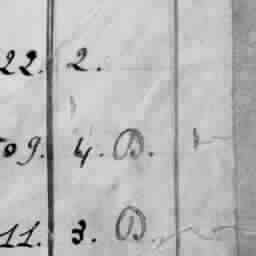 22. 2.
09. 4. B.
11. 3. B.